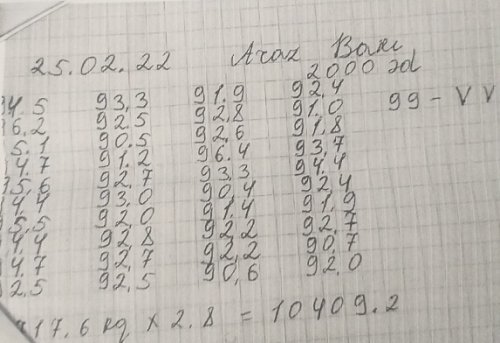 25.02.22 Araz Bakı
2000 əd
4.5 93,3 91.9 92.4 99 - V V
6.2 92.5 92,8 91.0
5.1 90.5 92,6 91,8
4.7 91.2 96.4 93.7
5,6 92,7 93.3 94.4
4,4 93.0 90.4 92,4
5,5 92.0 91.4 91.9
4.4 92,8 92.2 92.7
4.7 92,7 92,2 90.7
2,5 92,5 90,6 92.0
17.6 kg x 2.8 = 10409.2